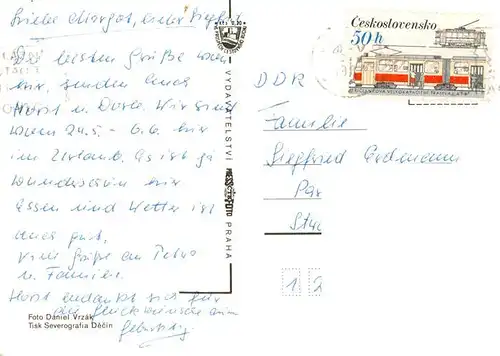 Liebe Margot, lieber Siegfried
Die besten Grüße von
hier, senden Euch
Horst u. Dora. Wir sind
vom 24.5. - 6.6. hier
im Urlaub. Es ist ja
wunderschön hier
Essen und Wetter ist
auch gut.
Viele Grüße an
u. Familie.
Horst bedankt sich für
die Glückwünsche zum
Geburtstag
Foto Daniel Vrzák
Tisk Severografia Děčín
VYDAVATELSTVÍ PRAHA
Československo
50 h
DDR
Familie
Siegfried Erdmann
1 2